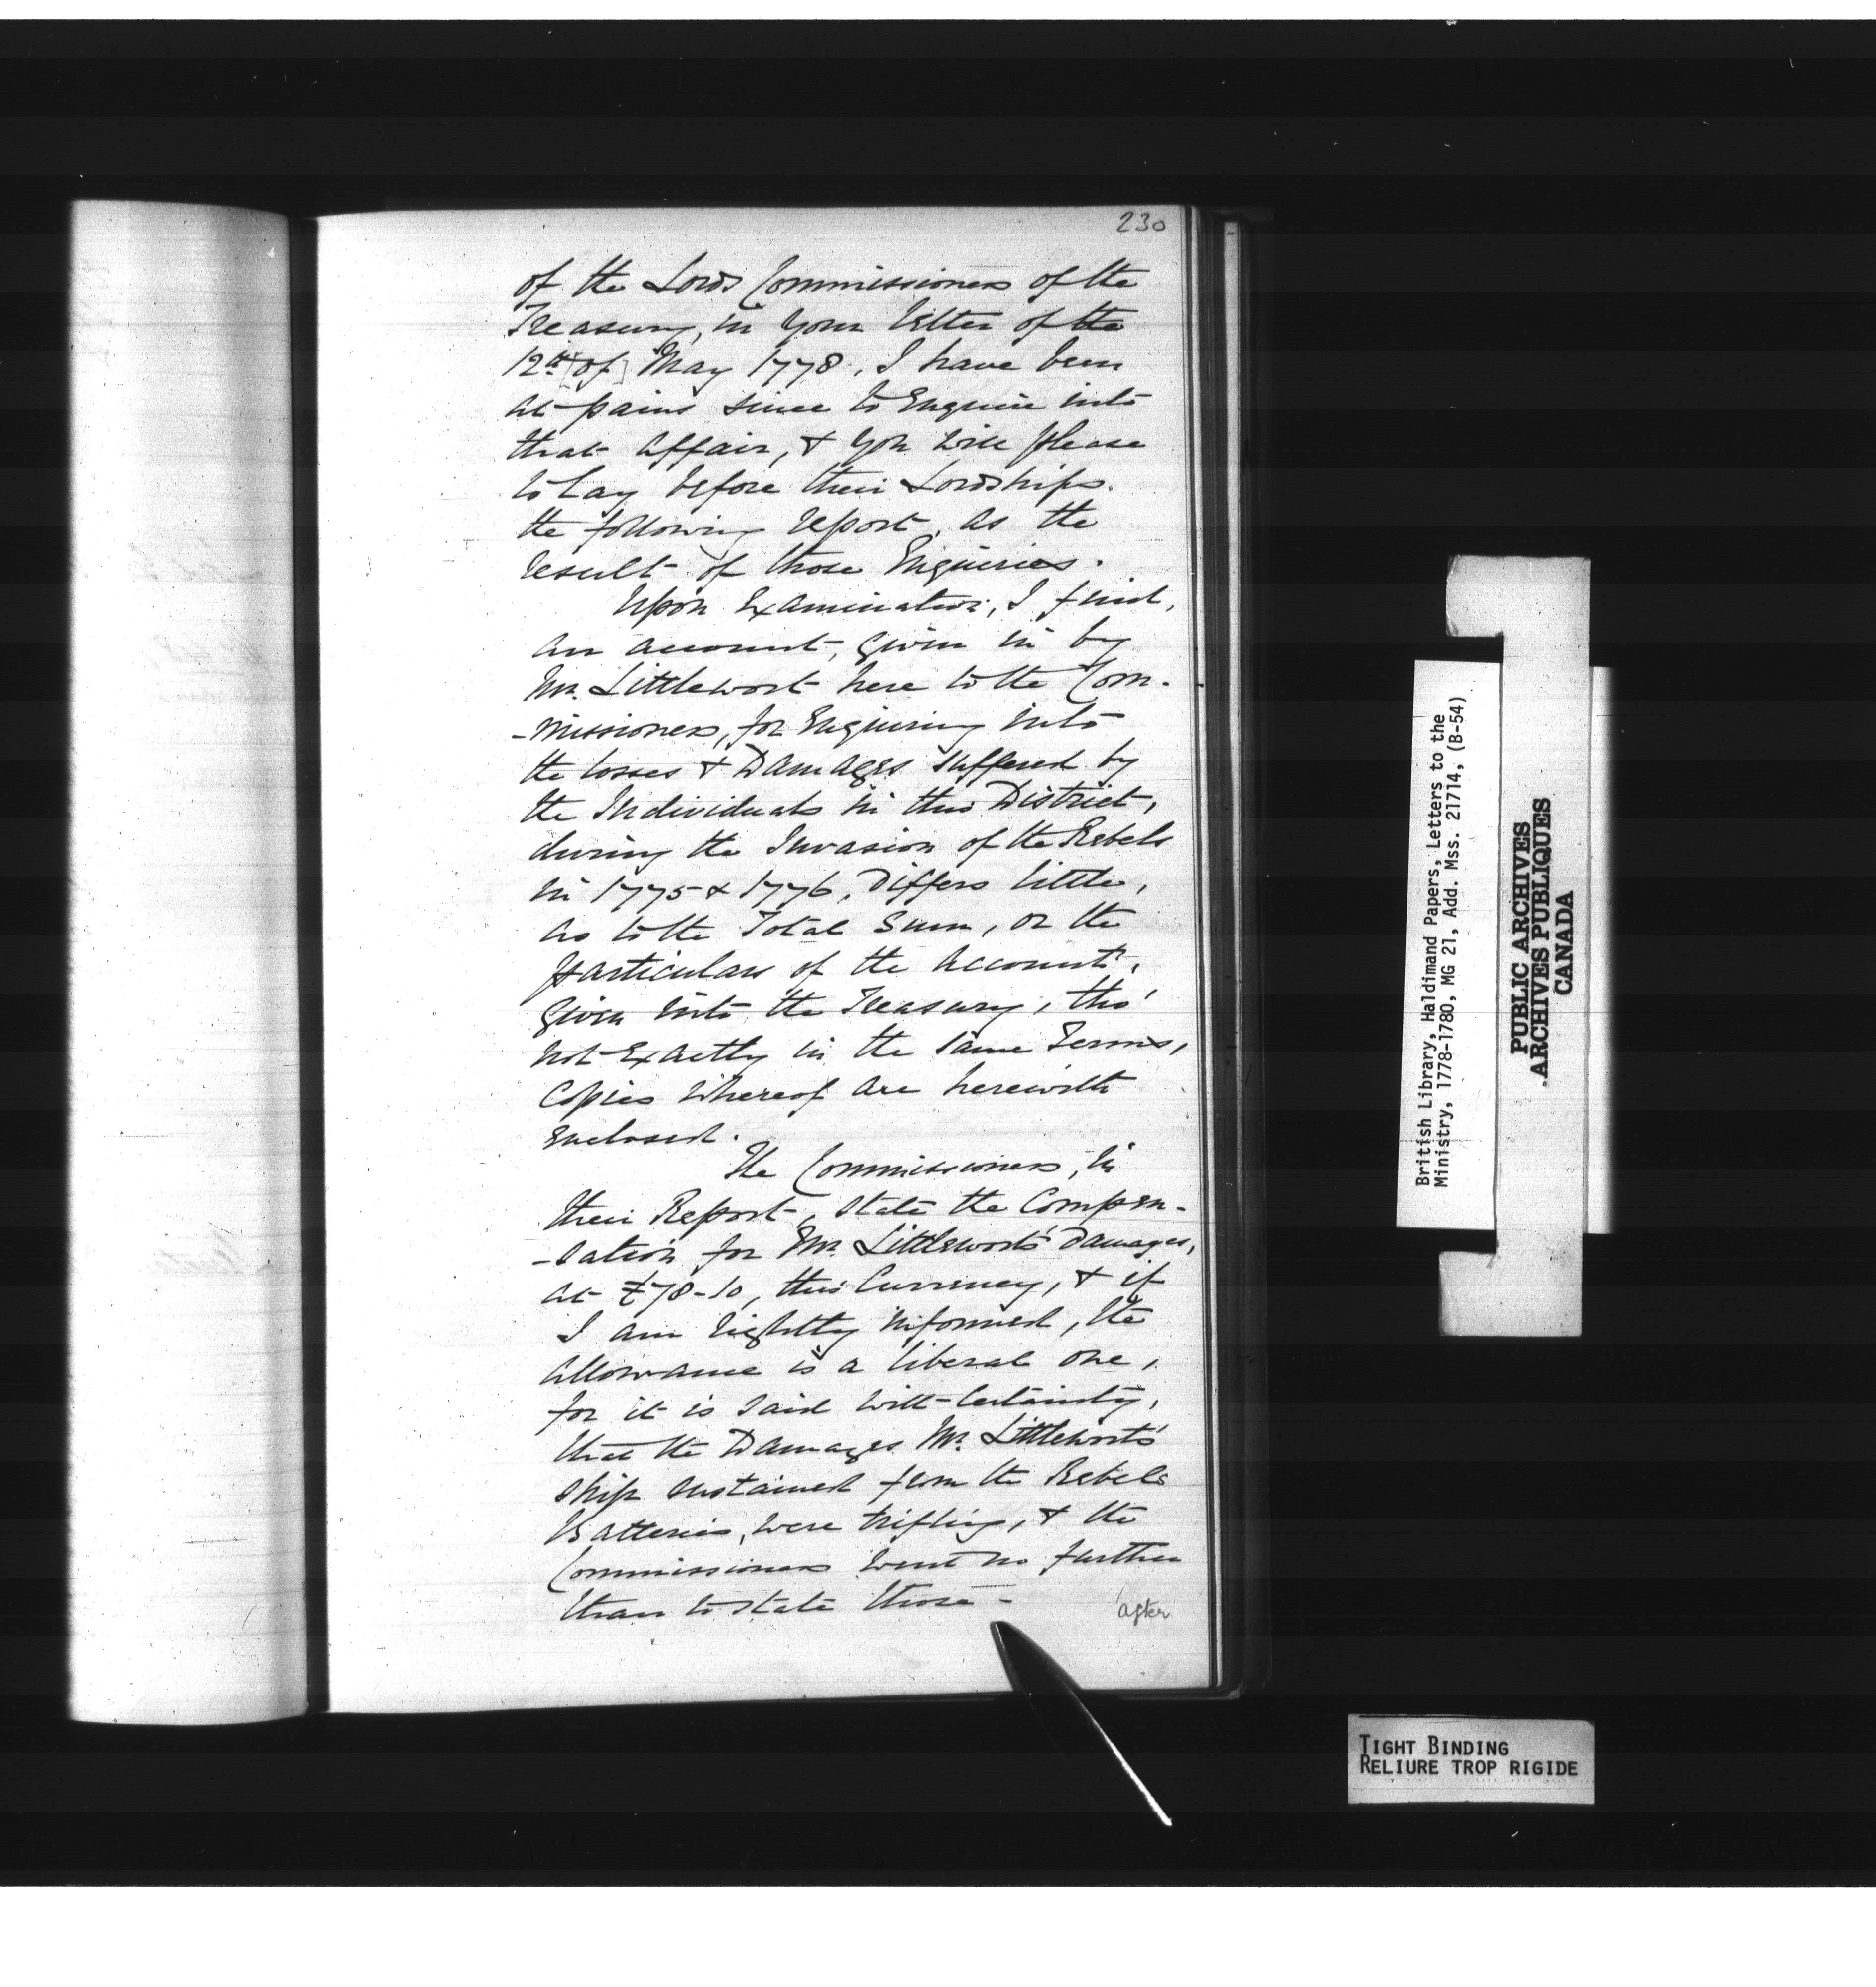 230
of the Lords Commissioners of the
Treasury, in your letter of the
12th [of] May 1778, I have been
at pains since to Enquire into
that affair, & you will please
to lay before their Lordships.
the following report, as the
result of those Enquiries.
Upon Examination, I find,
an account, given in by
Mr. Littlewort here to the Com-
-missioners, for Enquiring into
the losses & Damages suffered by
the Individuals in this District,
during the Invasion of the Rebels
in 1775 & 1776, Differs little,
as to the Total Sum, or the
particulars of the account,
given into the Treasury, tho'
not Exactly in the same Terms,
Copies whereof are herewith
Enclosed.
The Commissioners, in
their Report, state the Compen-
-sation for Mr. Littlewort's Damages,
at £78-10, this Currency, & if
I am rightly informed, the
allowance is a liberal one,
for it is said with Certainty,
that the Damages Mr. Littlewort's
ship sustained from the Rebels
Batteries, were trifling, & the
Commissioners went no further
than to state those -
after
British Library, Haldimand Papers, Letters to the
Ministry, 1778-1780, MG 21, Add. Mss. 21714, (B-54)
PUBLIC ARCHIVES
ARCHIVES PUBLIQUES
CANADA
TIGHT BINDING
RELIURE TROP RIGIDE